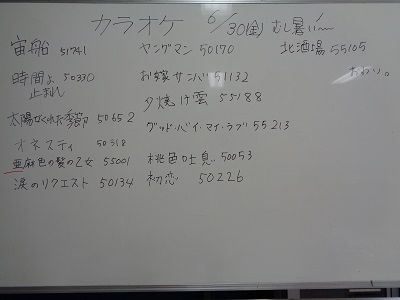 カラオケ 6/30(金) むし暑い〜
宙船 51741
時間よ 50330
止まれ
太陽がくれた季節 50652
オネスティ 50318
亜麻色の髪の乙女 55001
涙のリクエスト 50134
ヤングマン 50170
お嫁サンバ 51132
夕焼け雲 55188
グッド・バイ・マイ・ラブ 55213
桃色吐息 50053
初恋 50226
北酒場 55105